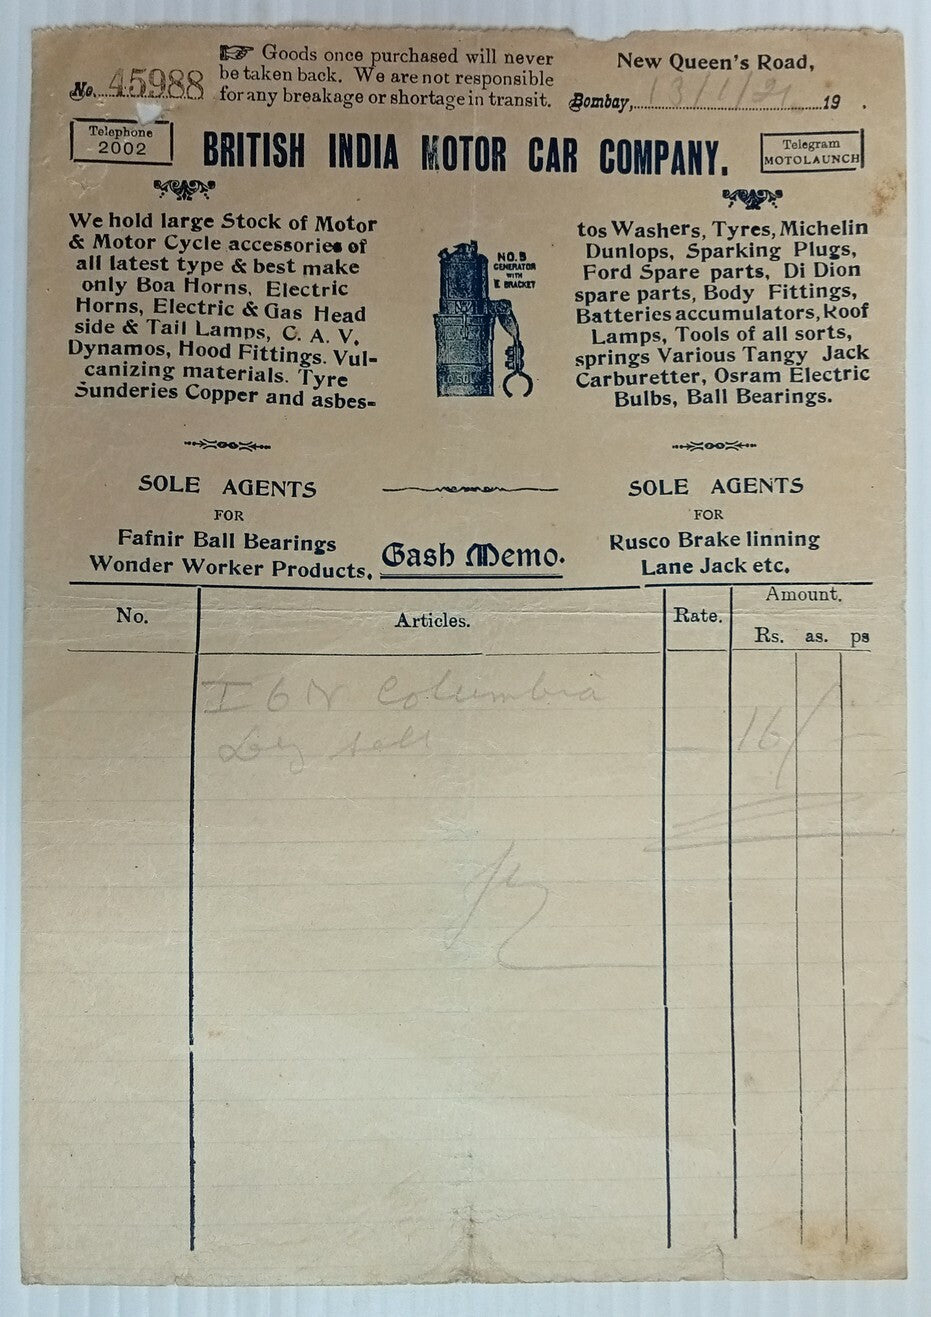 ☞ Goods once purchased will never
be taken back. We are not responsible
for any breakage or shortage in transit.
No. 45988
New Queen's Road,
Bombay, 13/1/21 19 .
Telephone
2002
BRITISH INDIA MOTOR CAR COMPANY.
Telegram
MOTOLAUNCH
We hold large Stock of Motor
& Motor Cycle accessories of
all latest type & best make
only Boa Horns, Electric
Horns, Electric & Gas Head
side & Tail Lamps, C. A. V.
Dynamos, Hood Fittings. Vul-
canizing materials. Tyre
Sunderies Copper and asbes-
NO. 5
GENERATOR
WITH
E BRACKET
tos Washers, Tyres, Michelin
Dunlops, Sparking Plugs,
Ford Spare parts, Di Dion
spare parts, Body Fittings,
Batteries accumulators, Roof
Lamps, Tools of all sorts,
springs Various Tangy Jack
Carburetter, Osram Electric
Bulbs, Ball Bearings.
SOLE AGENTS
FOR
Fafnir Ball Bearings
Wonder Worker Products.
Gash Memo.
SOLE AGENTS
FOR
Rusco Brake linning
Lane Jack etc.
No.
Articles.
Rate.
Amount.
Rs. as. ps
I 6 V Columbia
16/-